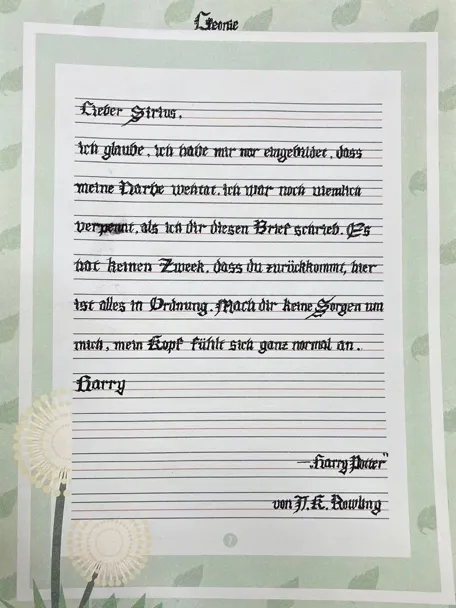 Leonie
Lieber Sirius,
ich glaube, ich habe mir nur eingebildet, dass
meine Narbe wehtat, ich war noch ziemlich
verpennt, als ich dir diesen Brief schrieb. Es
hat keinen Zweck, dass du zurückkommt, hier
ist alles in Ordnung. Mach dir keine Sorgen um
mich, mein Kopf fühlt sich ganz normal an.
Harry
—„Harry Potter"
von J. K. Rowling
7